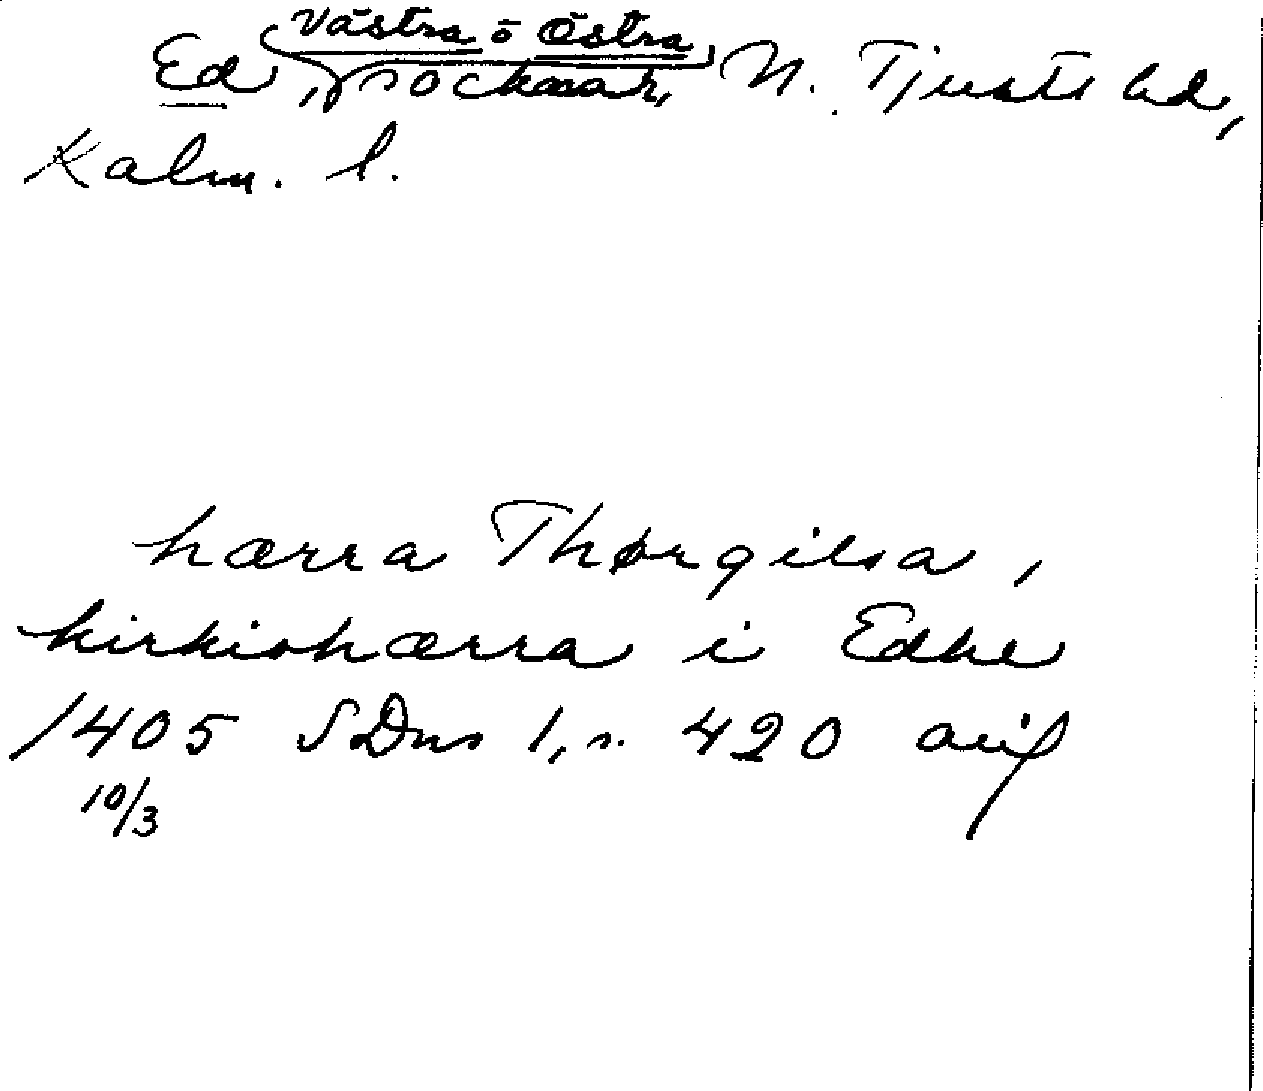 Västra o Östra
Ed, socknar, N. Tjusts hd,
Kalm. l.
hærra Thørgilsa,
kirkiohærra i Edhe
1405 SDns 1, s. 420 avs
10/3